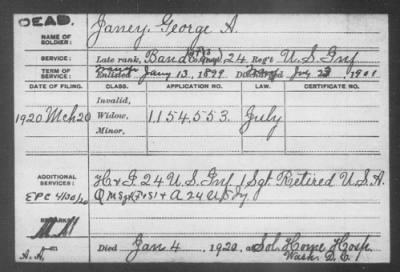 DEAD.
NAME OF SOLDIER: Janey, George A.
SERVICE: Late rank, Band 24 Reg't U.S. Inf
TERM OF SERVICE: Enlisted Jany 13, 1899 1901
DATE OF FILING. CLASS. APPLICATION NO. LAW. CERTIFICATE NO.
Invalid,
1920 Mch 20 Widow, 1154,553 July
Minor,
ADDITIONAL SERVICES: H & F. 24 U.S. Inf, 1 Sgt Retired U.S.A.
& A 24 US Inf
REMARKS:
Died Jan 4, 1920, at Sol. Home Hosp.
A.A. Wash. D.C.